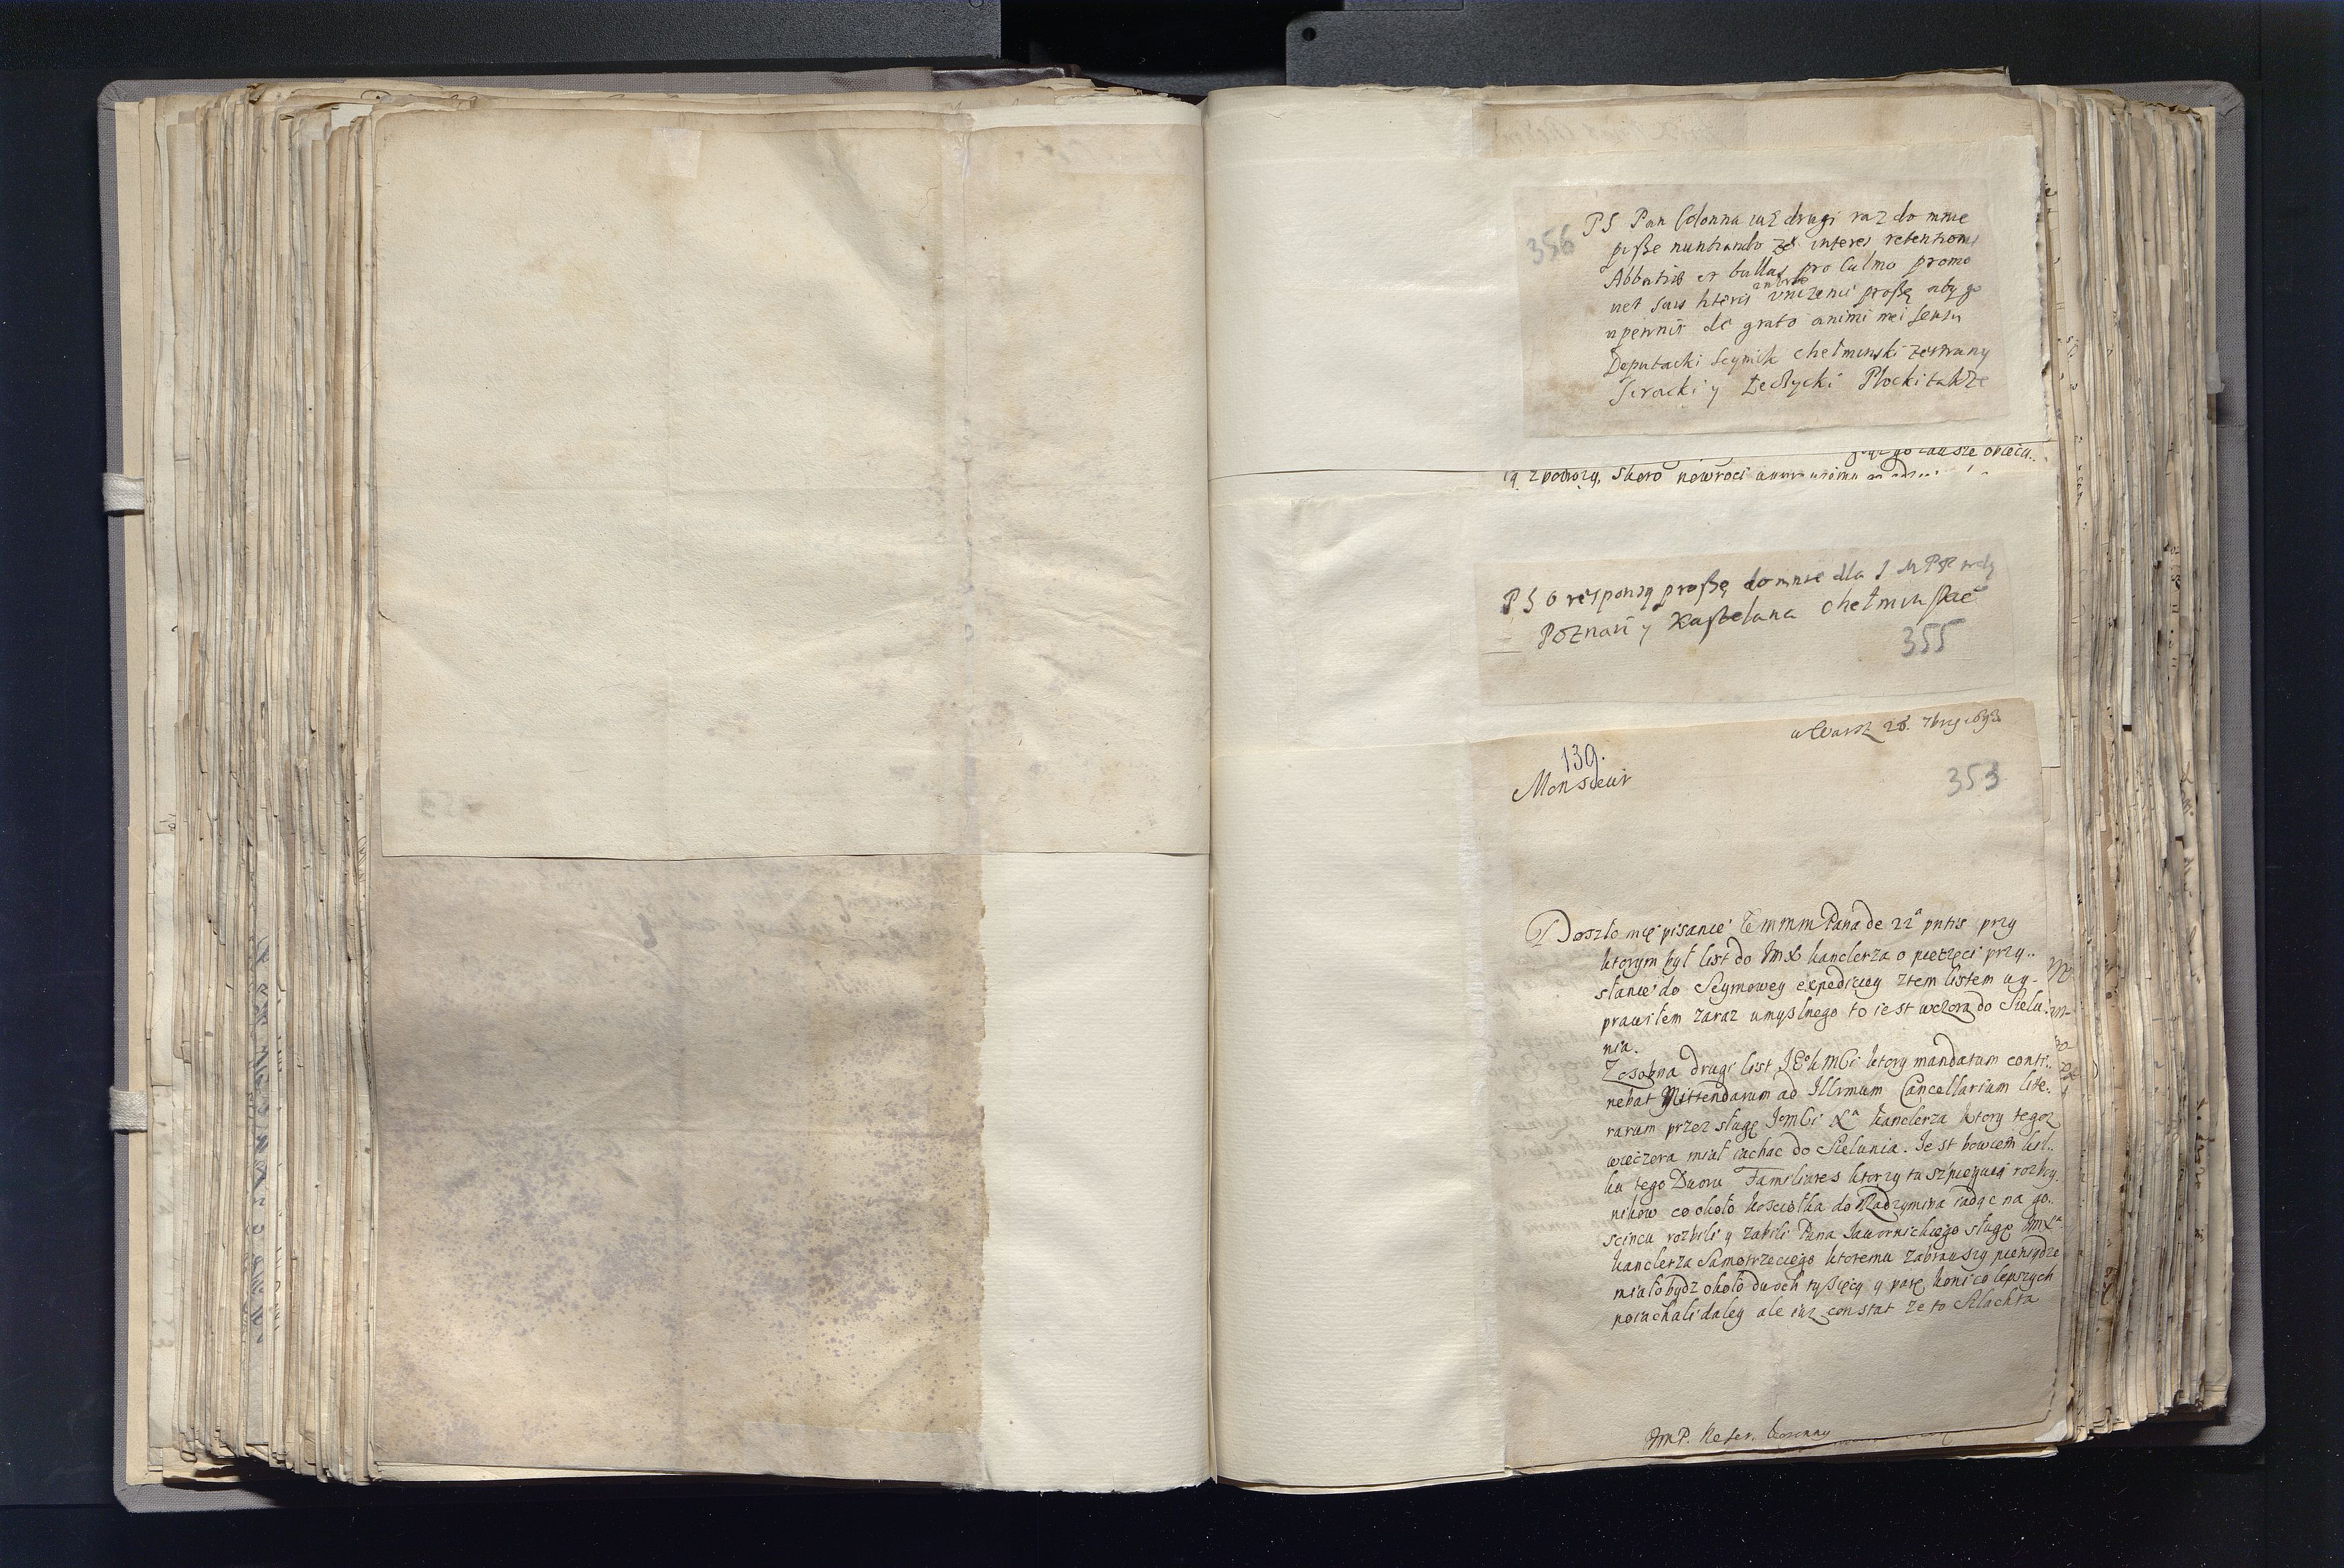 356
PS Pan Colonna iuz drugi raz do mnie
pisze nuntiando ze interes retentionis
Abbatiae et bullas pro Culmo promo
vet suis literis unizenie proszę aby go
upewnił de grato animi mei sensu
Deputacki Seymik chełminski zerwany
Siracki y Łęczycki Płocki także
ią z podrozy, skoro powroci
PS O responsą proszę do mnie dla J M P
Poznań y Kasztelana chełminskie
355
a Warsz 28. 7bris 1693
139.
Monsieur
353
Doszło mię pisanie WmmmPana de 22a pntis przy
ktorym był list do JmX kanclerza o pieczęci przy-
słanie do Seymowey expediciey z tem listem wy-
prawiłem zaraz umyslnego to iest wczora do Sielu-
nia.
Zosobna drugi list ktory mandatum conti-
nebat Mittendarum ad Illrmum Cancellarium lite-
rarum przez sługę JemCi Xa kanclerza ktory tegoz
wieczora miał iachac do Sielunia. Jest bowiem kil-
ku tego Dworu Familiares ktorzy tu szpieguią rozboy-
nikow co około kosciołka do Radzymina iadąc na go-
scincu rozbili y zabili Pana Jawornickiego sługę JmXa
kanclerza Samotrzeciego ktoremu zabrawszy pieniądze
miało bydz około dwoch tysięcy y parę koni co lepszych
poiachali daley ale iuz constat ze to Szlachta
JmP. Refer. Koronny